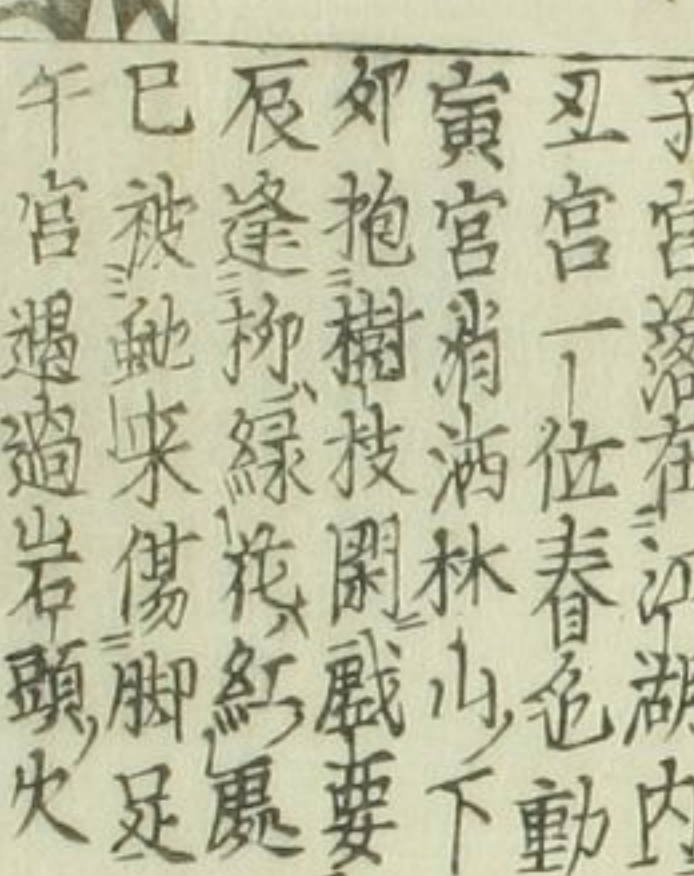 子宮落在江湖内
丑宮一位春色動
寅宮消洒林山下
卯抱樹枝閙戲要
辰逢柳緑花紅處
巳被虵来傷脚足
午宮遏過岩頭火